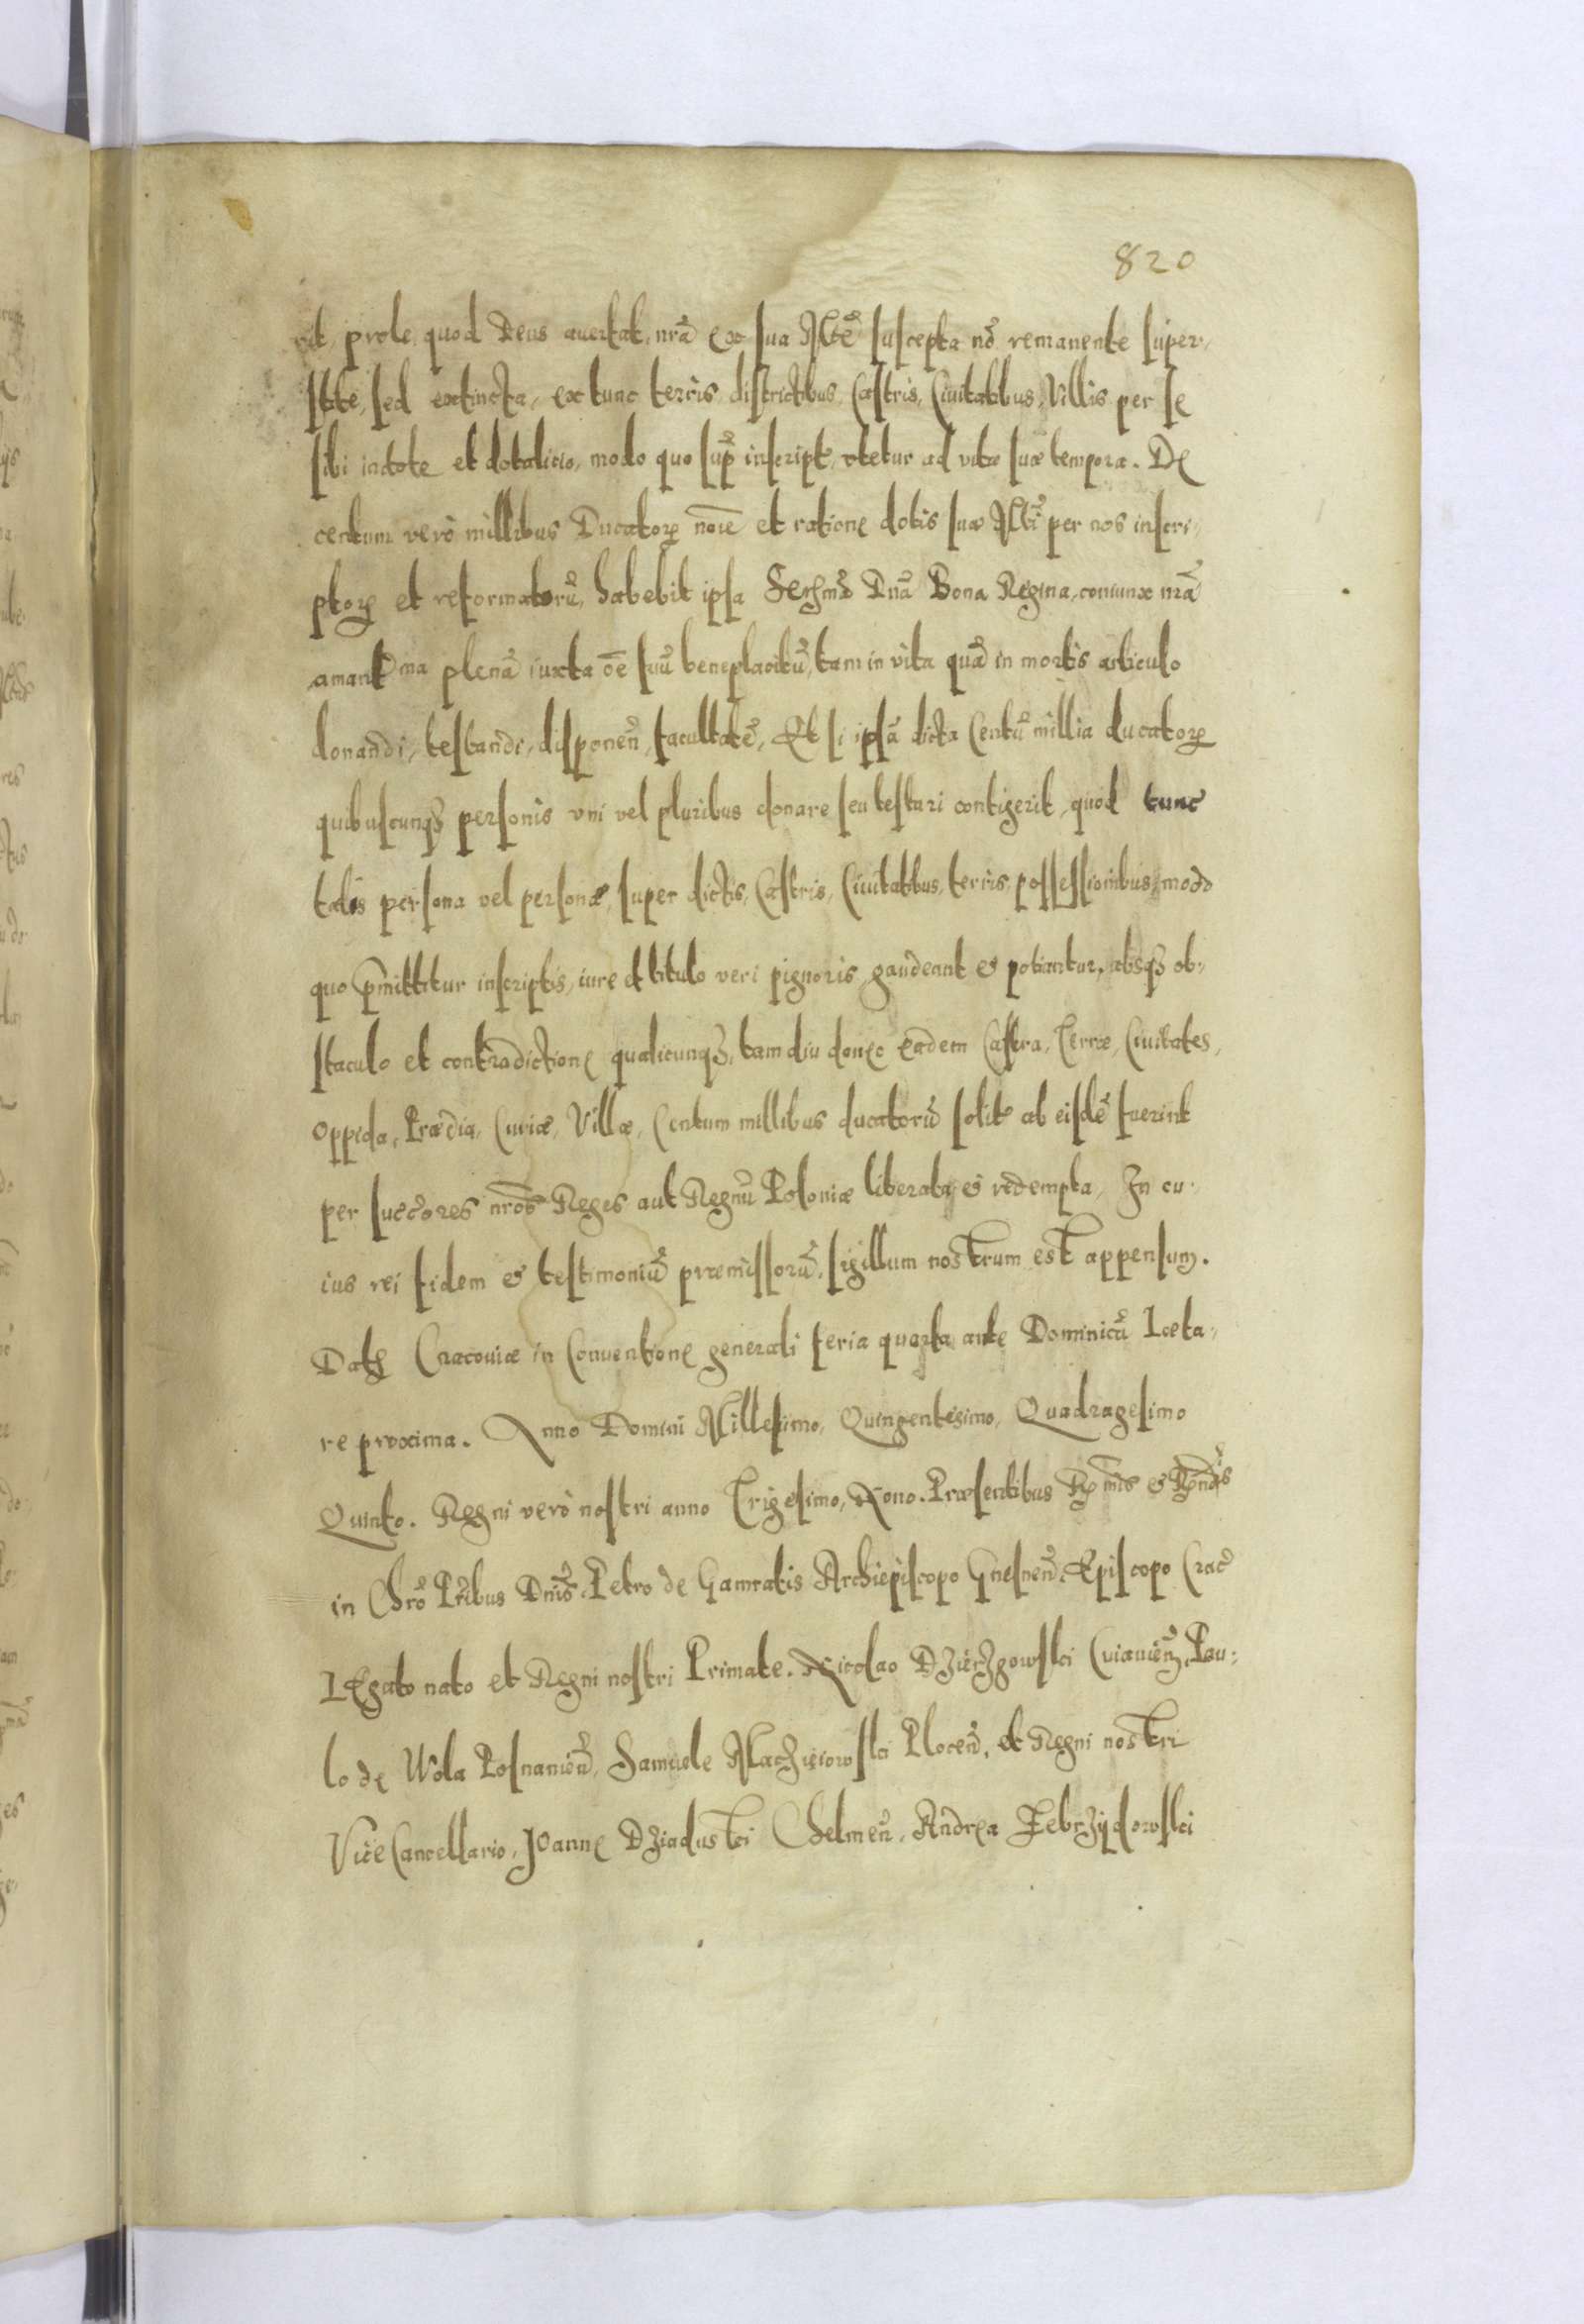 820
rit, prole, quod Deus auertat, nrã ex sua Mtẽ suscepta nõ remanente super,
stite, sed extincta, ex tunc terris, districtibus, Castris, Ciuitatibus, Villis per se
sibi in dote et dotalicio, modo quo sup̃ inscript, vtetur ad vitæ suæ tempora. De
centum verò millibus Ducatorꝝ noiẽ et ratione dotis suæ Mti per nos inscri,
ptorꝝ et reformatorũ, habebit ipsa Serꝫma Dnã Bona Regina, coniunx nrã
amantma plenã iuxta oẽ suũ beneplacitũ, tam in vita quã in mortis articulo
donandi, testandi, disponeñ, facultatẽ, Et si ipsã dicta Centũ millia ducatorꝝ
quibuscunqꝫ personis vni vel pluribus donare seu testari contigerit, quòd tunc
talis persona vel personæ, super dictis, Castris, Ciuitatibus, terris, possessionibus, modo
quo p̃mittitur inscriptis, iure et titulo veri pignoris gaudeant & potiantur, absqꝫ ob,
staculo et contradictione qualicunqꝫ, tam diu donec eadem Castra, Terræ, Ciuitates,
Oppida, Prædia, Curiæ, Villæ, Centum millibus ducatorũ solit ab eisdẽ fuerint
per succõres nrõs Reges aut Regnũ Poloniæ liberata & redempta, In cu,
ius rei fidem & testimoniũ præmissorũ, sigillum nostrum est appensum.
Datꝫ Cracouiæ in Conuentione generali feria quarta ante Dominicũ Læta,
re proxima. Anno Domini Millesimo, Quingentesimo, Quadragesimo
Quinto. Regni verò nostri anno Trigesimo, Nono. Præsentibus &
in Chrõ Pribus Dnis, Petro de Gamratis Archiepiscopo Gnesneñ, Episcopo Crac
Legato nato et Regni nostri Primate. Nicolao Dzierzgowski Cuiauieñ, Pau,
lo de Wola Posnanieñ, Samuele Maczieiowski Ploceñ, et Regni nostri
ViceCancellario, Joanne Dziaduski Chelmeñ, Andrea Zebrzydowski